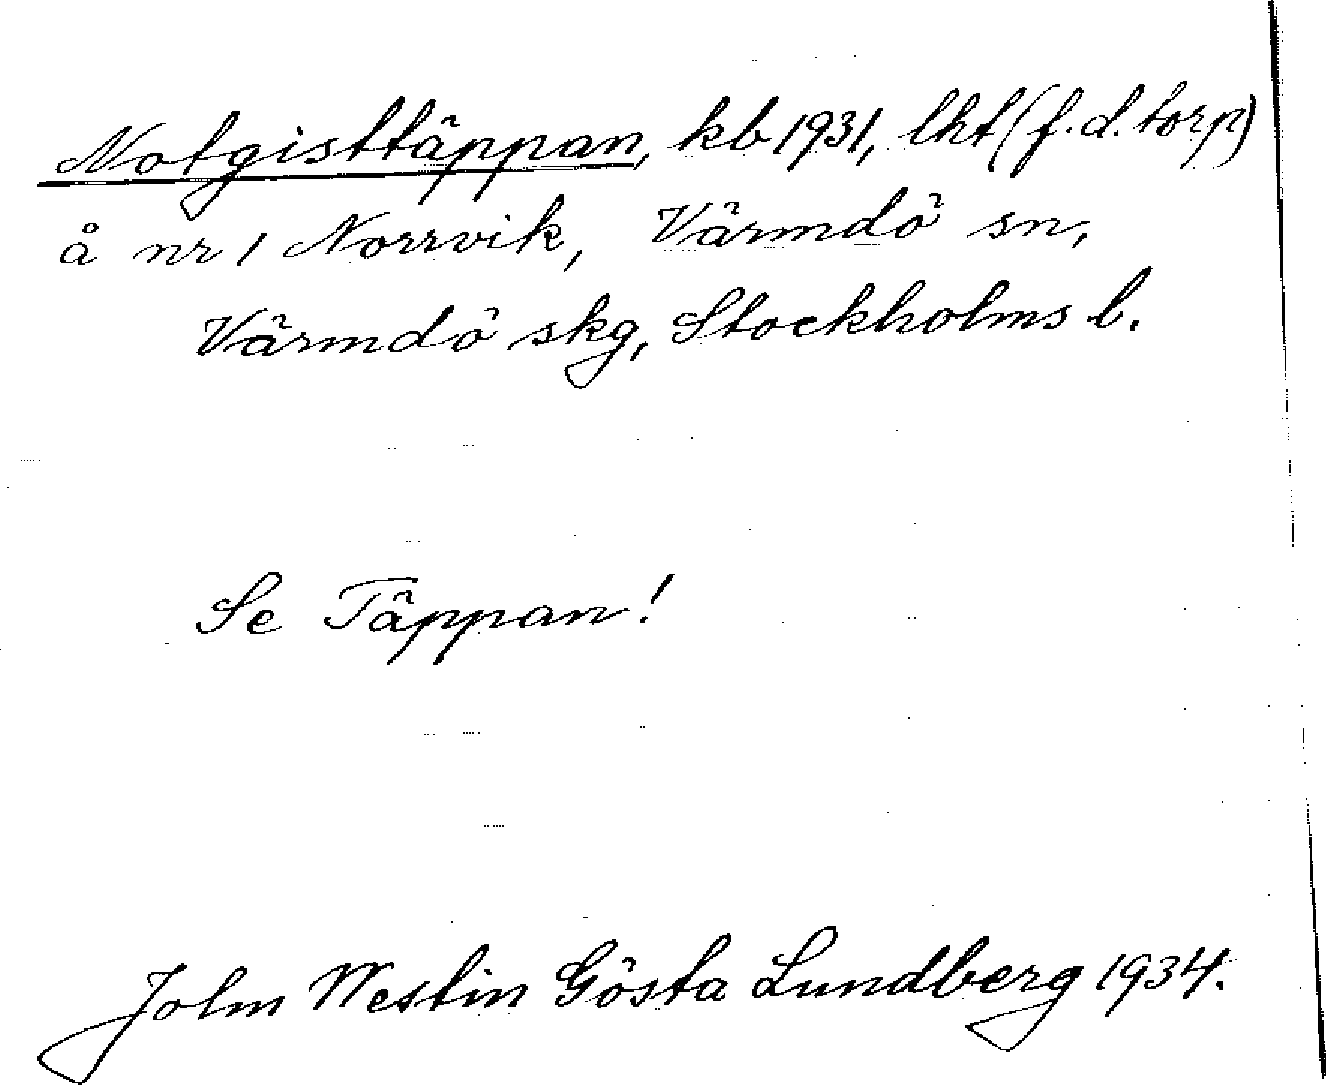 Notgisttäppan, kb 1931, lht (f.d. torp)
å nr 1 Norrvik, Värmdö sn,
Värmdö skg, Stockholms l.
Se Täppan!
John Westin Gösta Lundberg 1934.